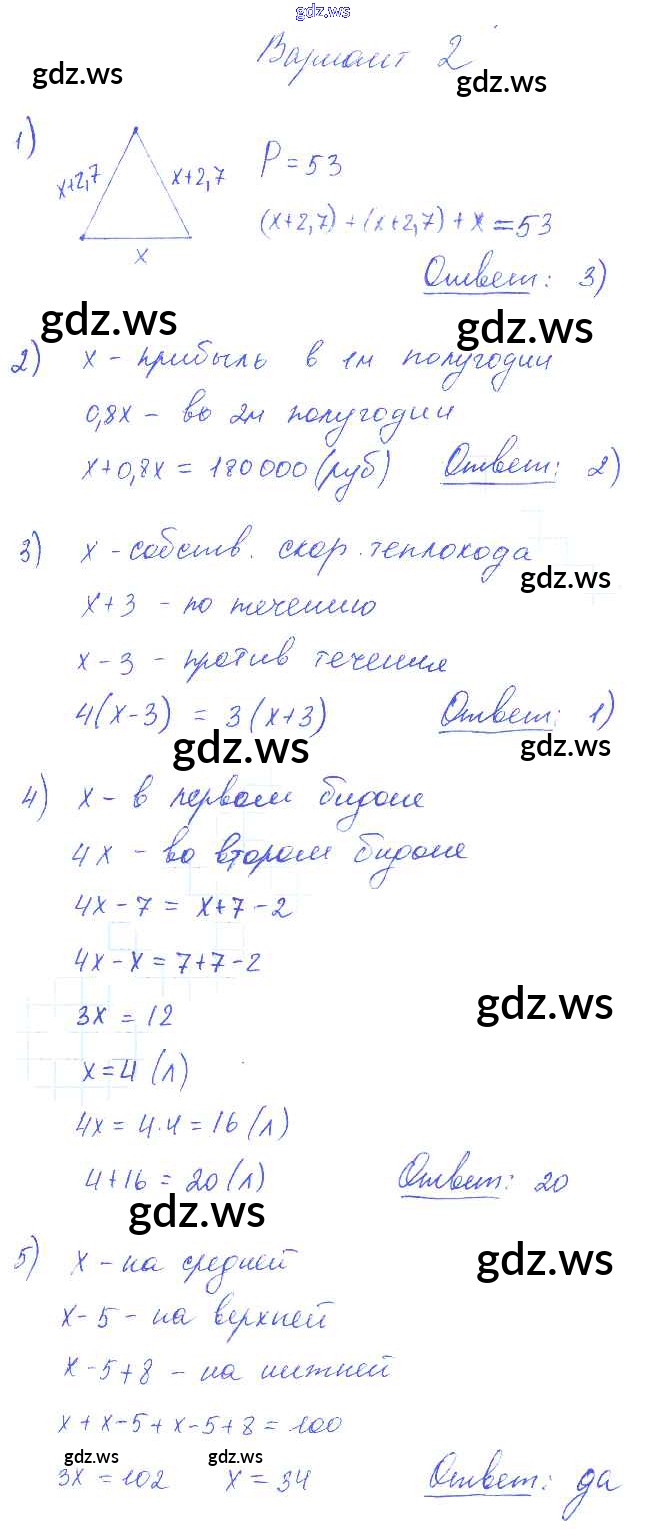 gdz.ws
Вариант 2
gdz.ws
gdz.ws
1)
x+2,7
x+2,7
x
P = 53
(x+2,7) + (x+2,7) + x = 53
Ответ: 3)
gdz.ws
gdz.ws
2) x - прибыль в 1м полугодии
0,8x - во 2м полугодии
x+0,8x = 180000 (руб) Ответ: 2)
3) x - собств. скор. теплохода
gdz.ws
x+3 - по течению
x-3 - против течения
4(x-3) = 3(x+3) Ответ: 1)
gdz.ws
gdz.ws
4) x - в первом бидоне
4x - во втором бидоне
4x - 7 = x+7-2
4x - x = 7+7-2
gdz.ws
3x = 12
x = 4 (л)
4x = 4·4 = 16 (л)
4+16 = 20 (л) Ответ: 20
gdz.ws
gdz.ws
5) x - на средней
x-5 - на верхней
x-5+8 - на нижней
x + x-5 + x-5+8 = 100
gdz.ws
gdz.ws
3x = 102 x = 34 Ответ: да